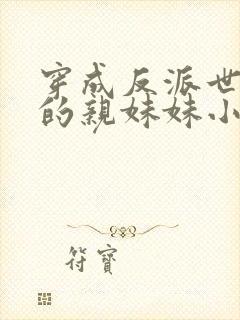 穿成反派世
的亲妹妹小
符寶